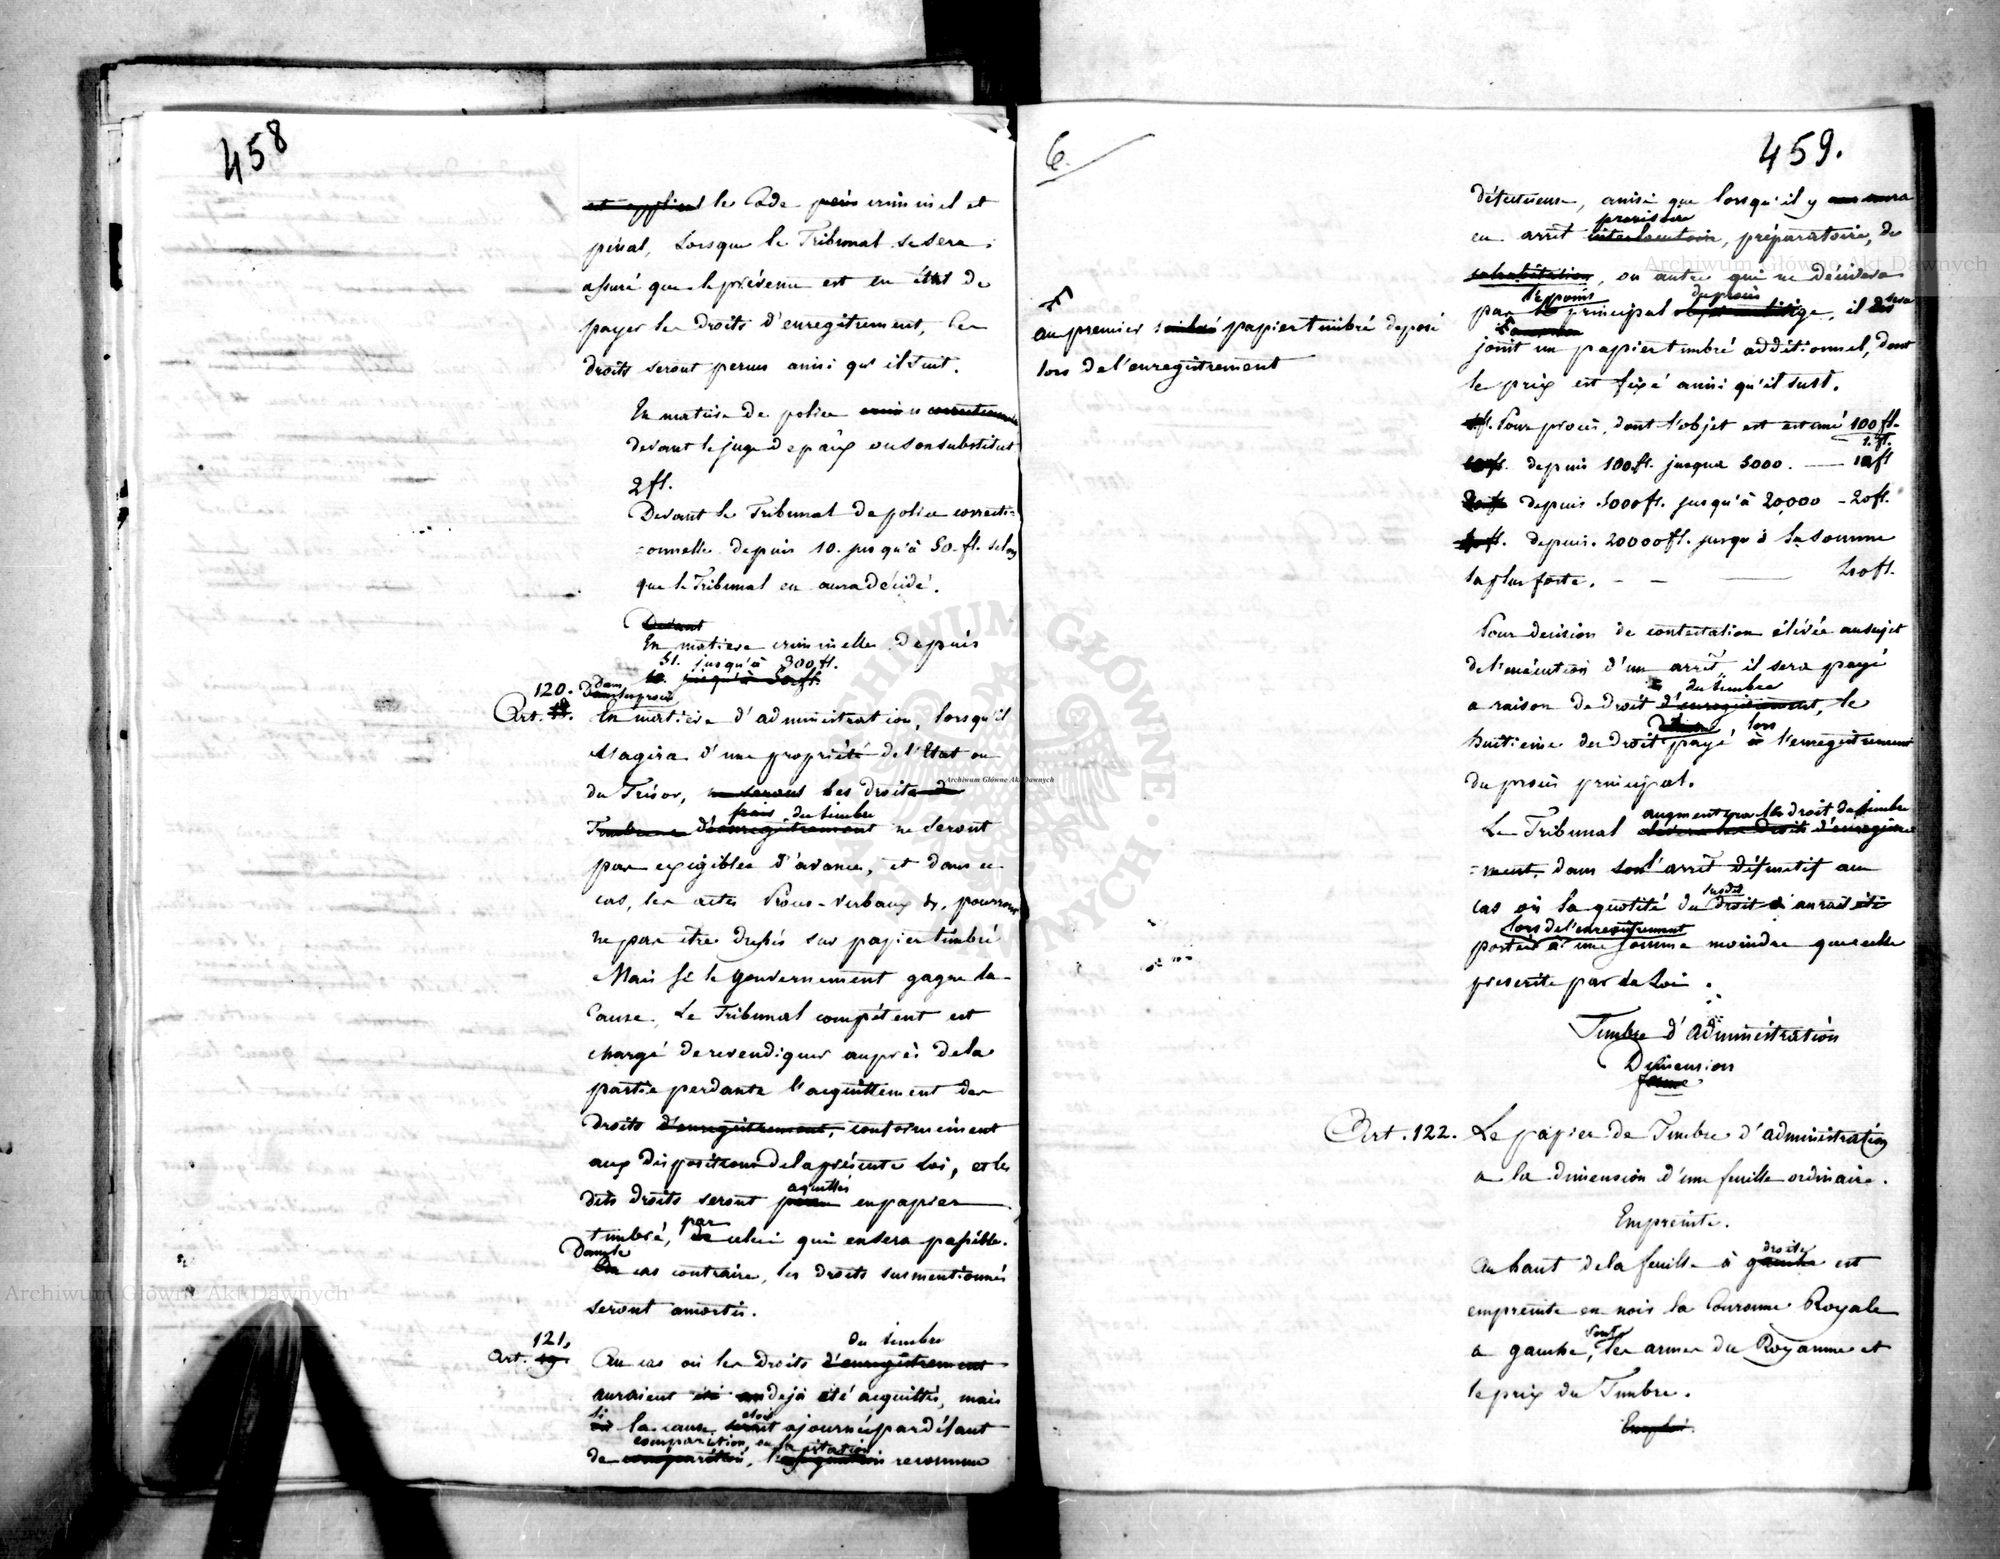 458
et appliant le Code pein criminel et
pénal, Lorsque le Tribunal se sera
assuré que le prévenu est en état de
payer les droits d'enregitrement, les
droits seront perçus ainsi qu'il suit.
En matière de police correctionnelle
devant le juge de paix ou son substitut
2 fl.
Devant le Tribunal de police correcti=
=onnelle depuis 10. jusqu'à 50. fl. selon
que le Tribunal en aura décidé.
Devant
En matiere criminelle depuis
51. jusqu'à 300 fl.
10. jusqu'à 50 fl.
120. Dans les procès
Art. En matière d'administration, lorsqu'il
s'agira d'une propriété de l'Etat ou
du Trésor, ne seront les droits de
frais du timbre
Timbre ne d'enregitrement ne seront
pas exigibles d'avance, et dans ce
cas, les actes Procès-verbaux &, pourront
ne pas etre dressés sur papier timbré
Mais si le gouvernement gagne la
Cause, Le Tribunal compétent est
chargé de revendiquer auprès de la
partie perdante l'acquittement des
droits d'enregitrement, conformement
aux dispositions de la présente Loi, et les
aquittés
dits droits seront en papier
par
timbré, de celui qui en sera passible.
Dans le
Au cas contraire, les droits susmentionnés
seront amortis.
121. du timbre
Art. 19. Au cas où les droits d'enregitrement
auraient été deja été acquittés, mais
si etoit
la cause serait ajournée par défaut
comparition, ou la citation
de comparition, l'assignation reconnue
6.
459.
défectueuse, ainsi que lorsqu'il y aura
provisoire
eu arrêt interlocutoir, préparatoire, de
cohabitation, ou autre qui ne décidera
le points du procès
pas le principal objet en litige, il sera
au premier timbré papier timbré deposé
lors de l'enregistrement
joint un papier timbré additionnel, dont
le prix est fixé ainsi qu'il suit.
Pour procès, dont l'objet est estimé 100 fl.
1. fl.
depuis 100 fl. jusqua 5000. — 10 fl
depuis 5000 fl. jusqu'à 20,000 - 20 fl.
depuis. 20000 fl. jusqu'à la somme
la plus forte. - - — 40 fl.
Pour decision de contestation élévée au sujet
de l'exécution d'un arrêt il sera payé
du timbre
a raison de droit d'enregitrement, le
lors
huitième du droit payé à l'enregitrement
du procès principal.
augmentera les droit de timbre
Le Tribunal élévera les Droits d'enregitre
=ment, dans son l'arrêt définitif au
susdit
cas où la quotité du droit aurait été
lors de l'enregistrement
portée à une somme moindre que celle
prescrite par la Loi.
Timbre d'administration
Dimension
forme
Art. 122. Le papier de Timbre d'administration
a la dimension d'une feuille ordinaire.
Empreinte.
droite
Au haut de la feuille à gauche est
empreinte en noir la Couronne Royale
sont
a gauche, les armes du Royaume et
le prix du Timbre.
Emploi.
Archiwum Główne Akt Dawnych
Archiwum Główne Akt Dawnych
Archiwum Główne Akt Dawnych
ARCHIWUM GŁÓWNE AKT DAWNYCH